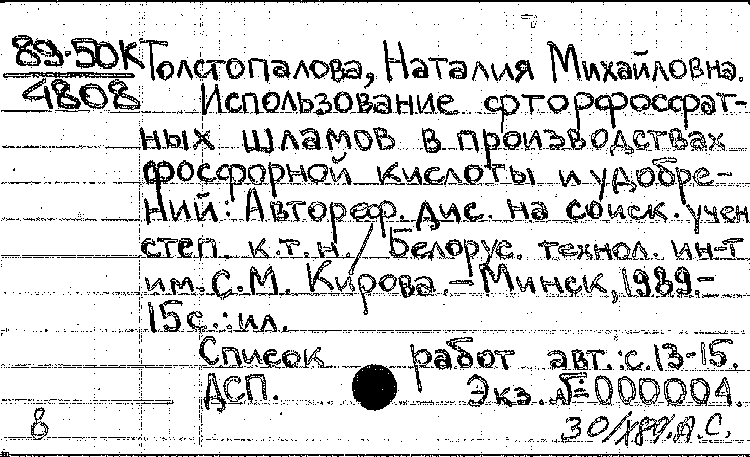 89-50К Толстопалова, Наталия Михайловна.
4808 Использование фторфосфат-
ных шламов в производствах
фосфорной кислоты и удобре-
ний: Автореф. дис. на соиск. учен
степ. к.т.н. / Белорус. технол. ин-т
им. С.М. Кирова. - Минск, 1989.-
15с.: ил.
Список работ авт.: с.13-15.
ДСП. Экз. № 000004.
8